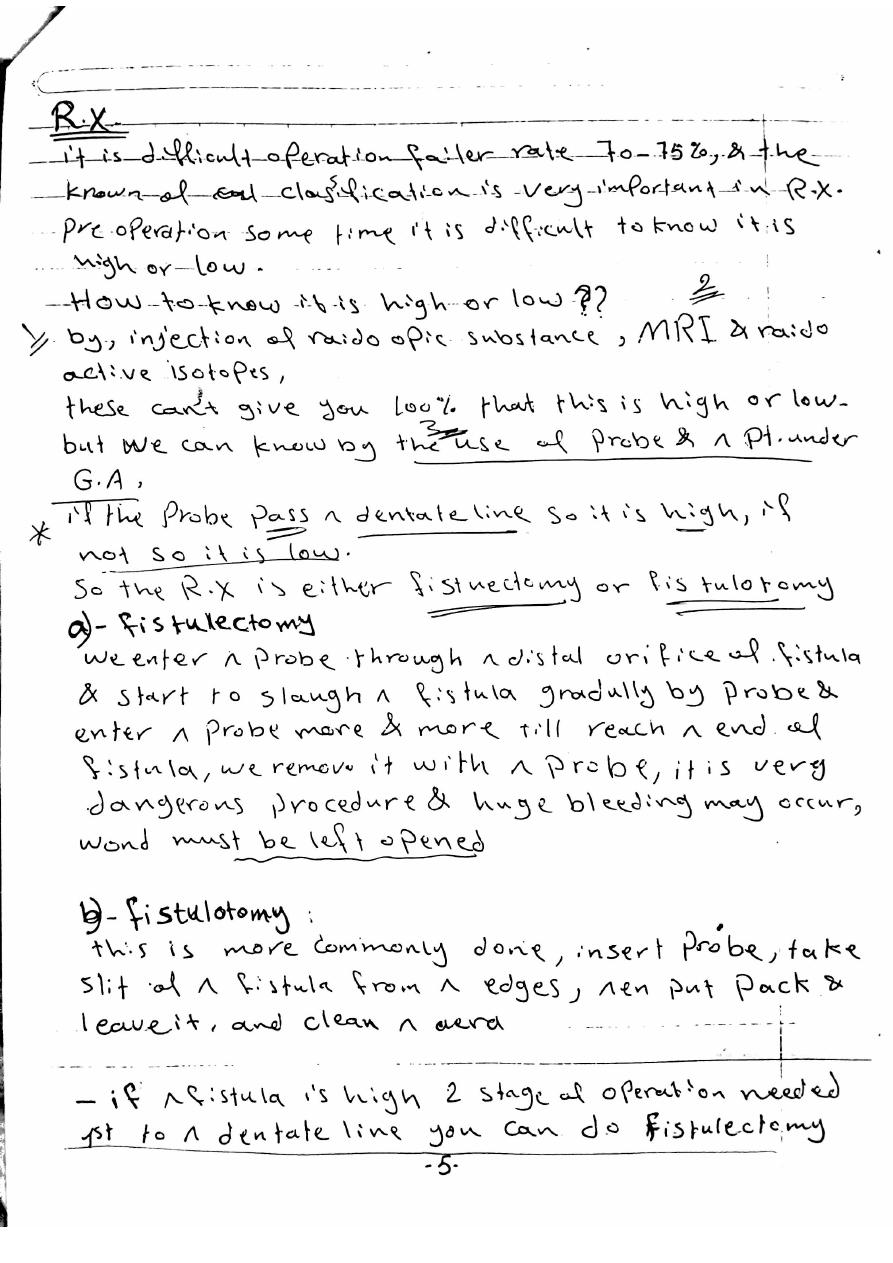 R.X
it is difficult operation failer rate 70-75%, & the
known of clasification is very important in R.X.
pre operation some time it is difficult to know it is
high or low.
- How to know it is high or low ??
2
by, injection of raido opic substance, MRI & raido
active isotopes,
these can't give you 100% that this is high or low-
3
but we can know by the use of Probe & ^ Pt. under
G.A,
* if the Probe pass ^ dentate line so it is high, if
not so it is low.
So the R.X is either fistuectomy or fistulotomy
a)- fistulectomy
we enter ^ probe through ^ distal orifice of fistula
& start to slaugh ^ fistula gradully by probe &
enter ^ probe more & more till reach ^ end of
fistula, we remove it with ^ probe, it is very
dangerons procedure & huge bleeding may occur,
wond must be left opened
b)- fistulotomy :
this is more commonly done, insert probe, take
slit of ^ fistula from ^ edges, ^en put pack &
leave it, and clean ^ aera
- if ^ fistula is high 2 stage of operation needed
1st to ^ dentate line you can do fistulectomy
-5-